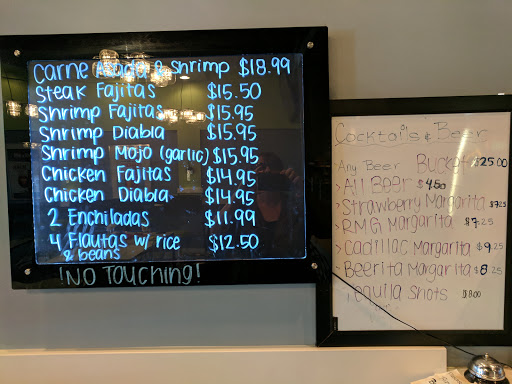 Carne Asada & Shrimp $18.99
Steak Fajitas $15.50
Shrimp Fajitas $15.95
Shrimp Diabla $15.95
Shrimp Mojo (garlic) $15.95
Chicken Fajitas $14.95
Chicken Diabla $14.95
2 Enchiladas $11.99
4 Flautas w/ rice & beans $12.50
!NO TOUCHING!
Cocktails & Beer
Any Beer Bucket $25.00
All Beer $4.50
Strawberry Margarita $9.25
RMG Margarita $7.25
Cadillac Margarita $9.25
Beerita Margarita $8.25
Tequila Shots $8.00